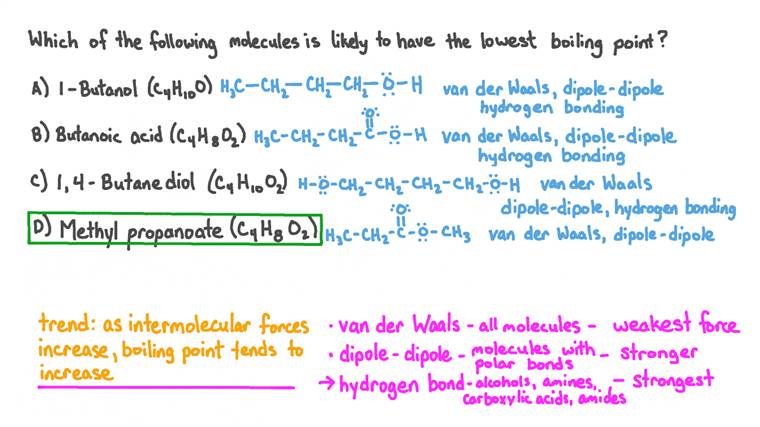 Which of the following molecules is likely to have the lowest boiling point?
A) 1-Butanol (C₄H₁₀O) H₃C-CH₂-CH₂-CH₂-Ö-H van der Waals, dipole-dipole
hydrogen bonding
:O:
B) Butanoic acid (C₄H₈O₂) H₃C-CH₂-CH₂-C-Ö-H van der Waals, dipole-dipole
hydrogen bonding
C) 1,4-Butanediol (C₄H₁₀O₂) H-Ö-CH₂-CH₂-CH₂-CH₂-Ö-H van der Waals
dipole-dipole, hydrogen bonding
:O:
D) Methyl propanoate (C₄H₈O₂) H₃C-CH₂-C-Ö-CH₃ van der Waals, dipole-dipole
trend: as intermolecular forces
increase, boiling point tends to
increase
• van der Waals - all molecules - weakest force
• dipole-dipole - molecules with polar bonds - stronger
→ hydrogen bond - alcohols, amines, carboxylic acids, amides - strongest